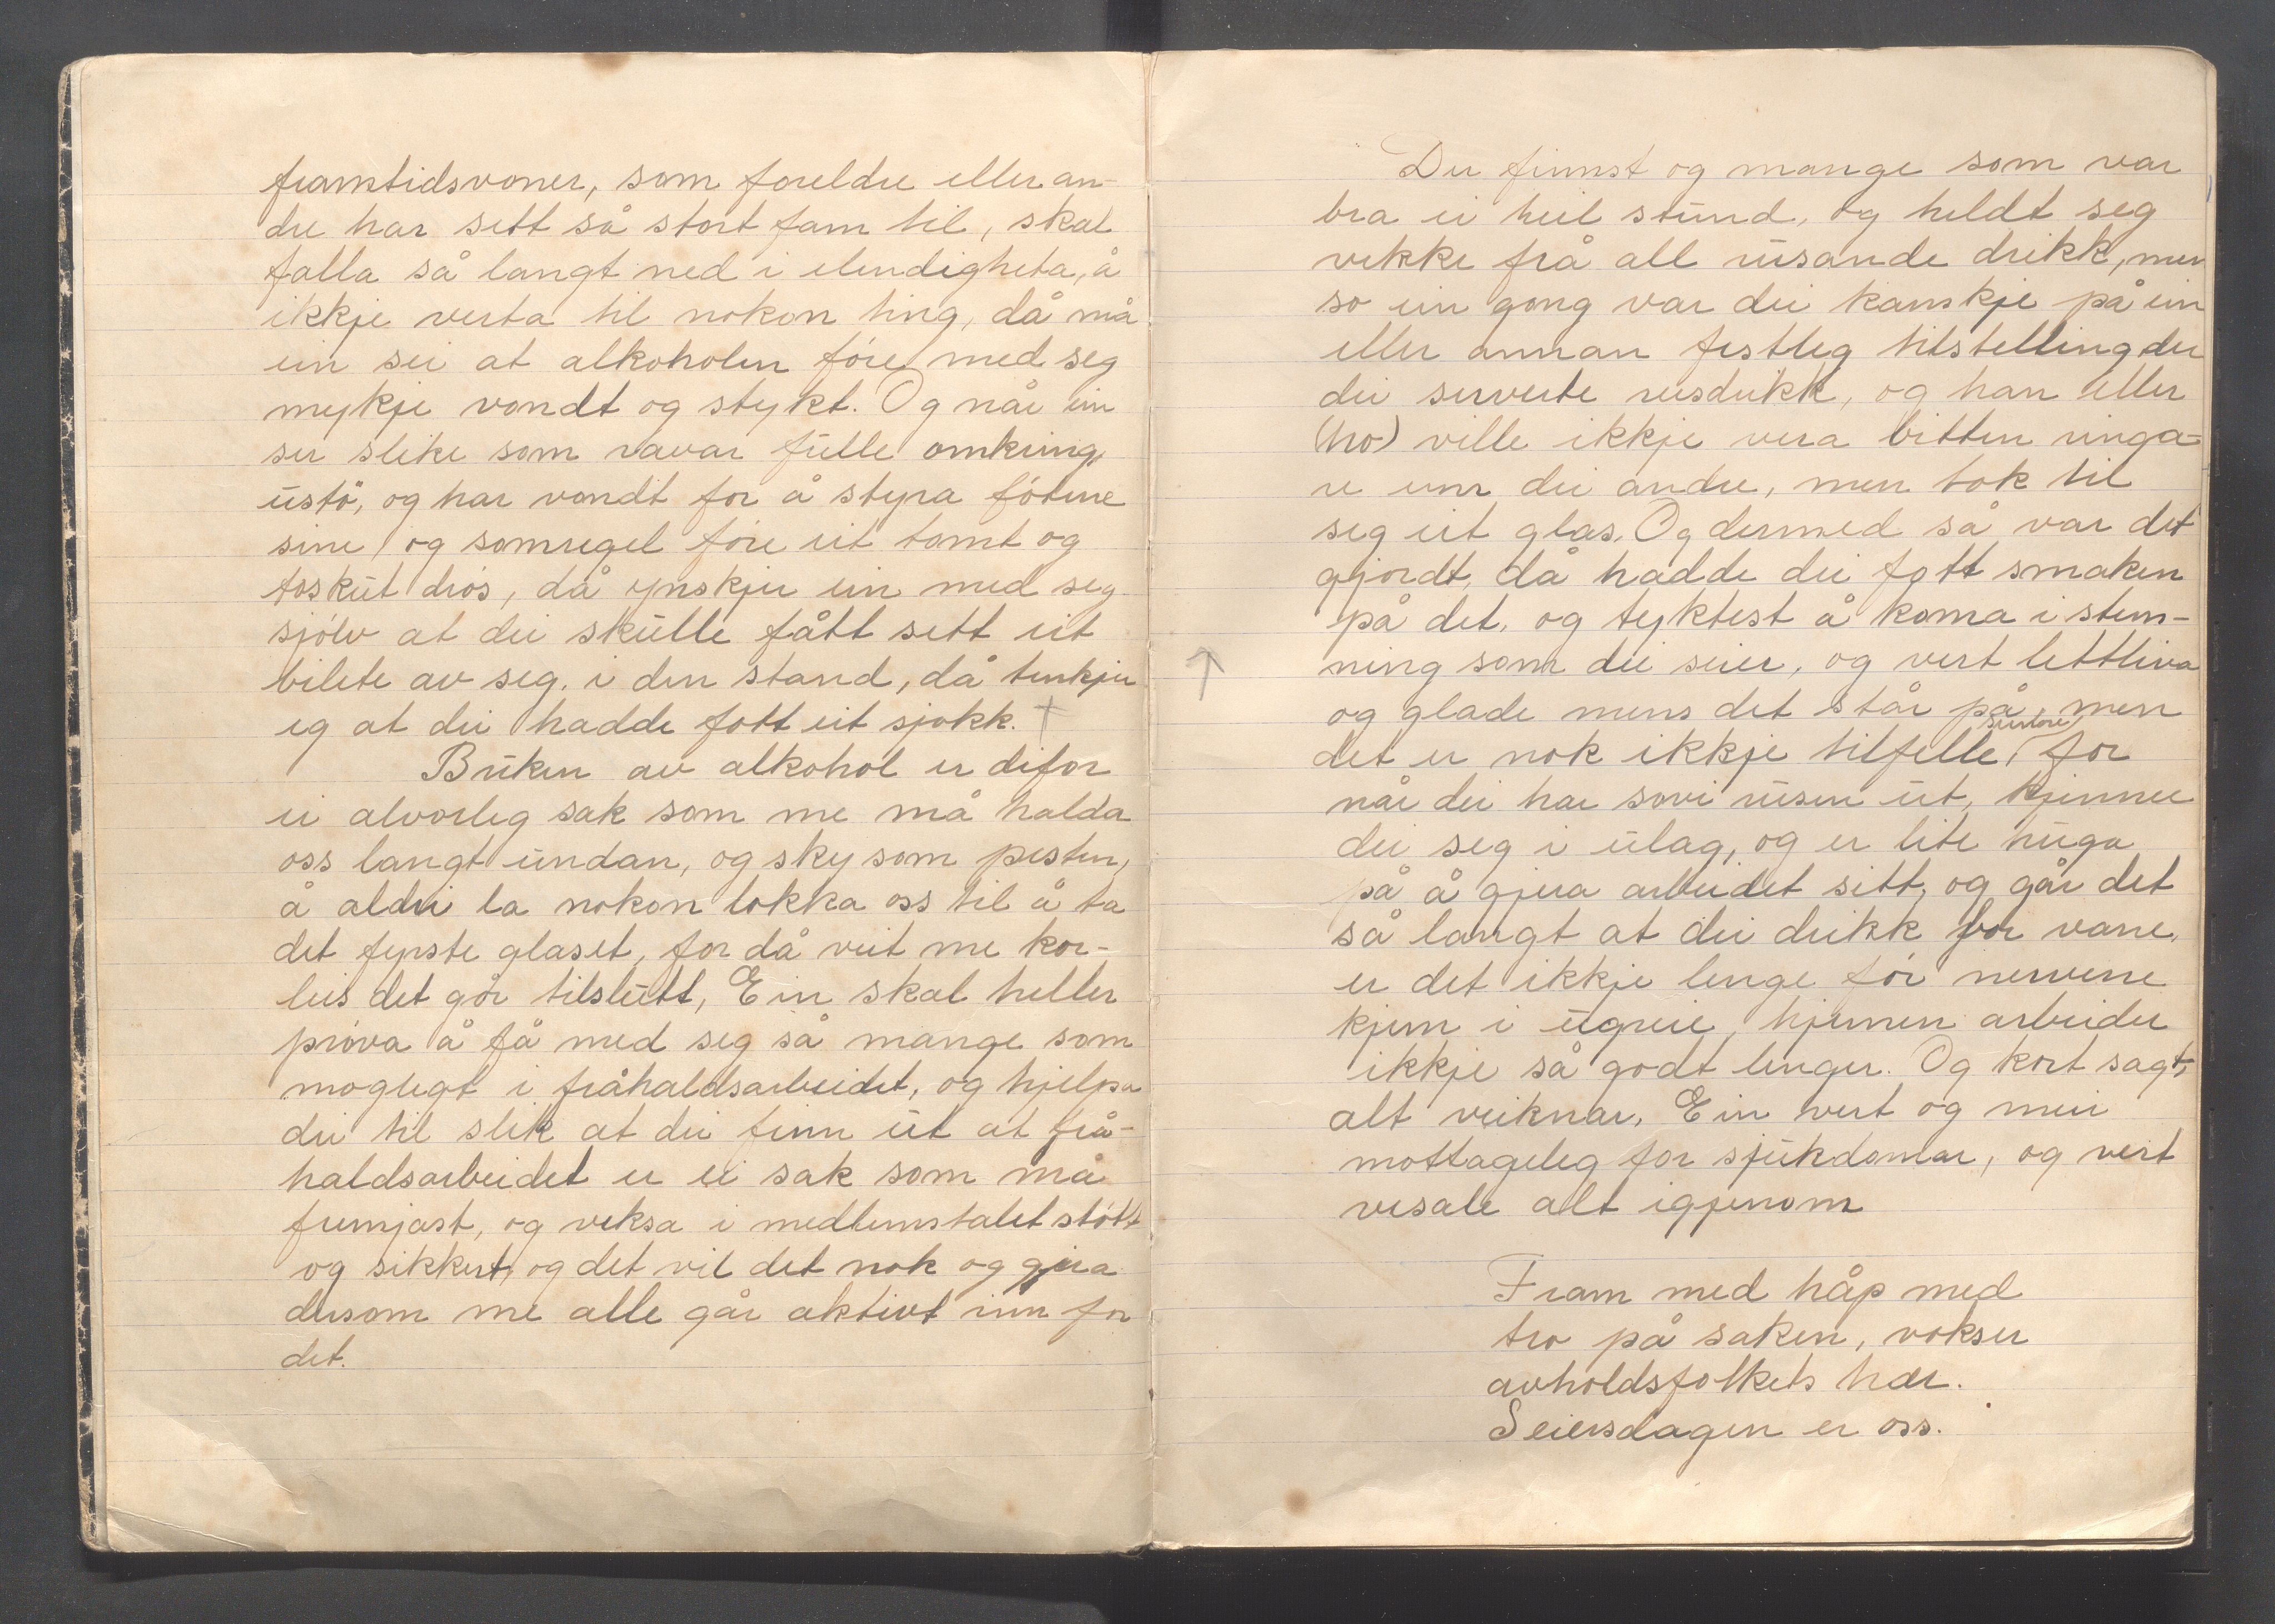 framtidsvoner, som foreldre eller an-
dre har sett så stort fam til, skal
falla så langt ned i elendigheta, å
ikkje verta til nokon ting, då må
ein sei at alkoholen före med seg
mykje vondt og stykt. Og når ein
ser slike som ravar fulle omkring,
ustö, og har vondt for å styra fötene
sine, og somregel före eit tomt og
toskut drös, då ynskjer ein med seg
sjölv at dei skulle fått sett eit
bilete av seg. i den stand, då tenkjer
eg at dei hadde fått eit sjokk. +
Bruken av alkohol er difor
ei alvorleg sak som me må halda
oss langt undan, og sky som pesten,
å aldri la nokon lokka oss til å ta
det fyrste glaset, for då veit me kor-
leis det går tilslutt, Ein skal heller
pröva å få med seg så mange som
moglegt i fråhaldsarbeidet, og hjelpa
dei til slik at dei finn ut at frå-
haldsarbeidet er ei sak som må
fremjast, og veksa i medlemstalet stött
og sikkert, og det vil det nok og gjera
dersom me alle går aktivt inn for
det.
Der finnst og mange som var
bra ei heil stund, og heldt seg
vekke frå all rusande drikk, men
so ein gong var dei kanskje på ein
eller annan festleg tilstelling der
dei serverte rusdrikk, og han eller
(ho) ville ikkje vera bitten ringa-
re enn dei andre, men tok til
seg eit glas. Og dermed så var det
gjordt, då hadde dei fått smaken
på det, og tyktest å koma i stem-
ning som dei seier, og vert lettliva
og glade mens det står på, men
det er nok ikkje tilfelle, for
når dei har sovi rusen ut, kjenner
dei seg i ulag, og er lite huga
på å gjera arbeidet sitt, og går det
så langt at dei drikk for vane,
er det ikkje lenge för nervene
kjem i ugreie, hjernen arbeider
ikkje så godt lenger. Og kort sagt,
alt veiknar, Ein vert og meir
mottageleg for sjukdomar, og vert
vesale alt igjenom
Fram med håp med
tro på saken, vokser
avholdsfolkets hær.
Seiersdagen er oss.